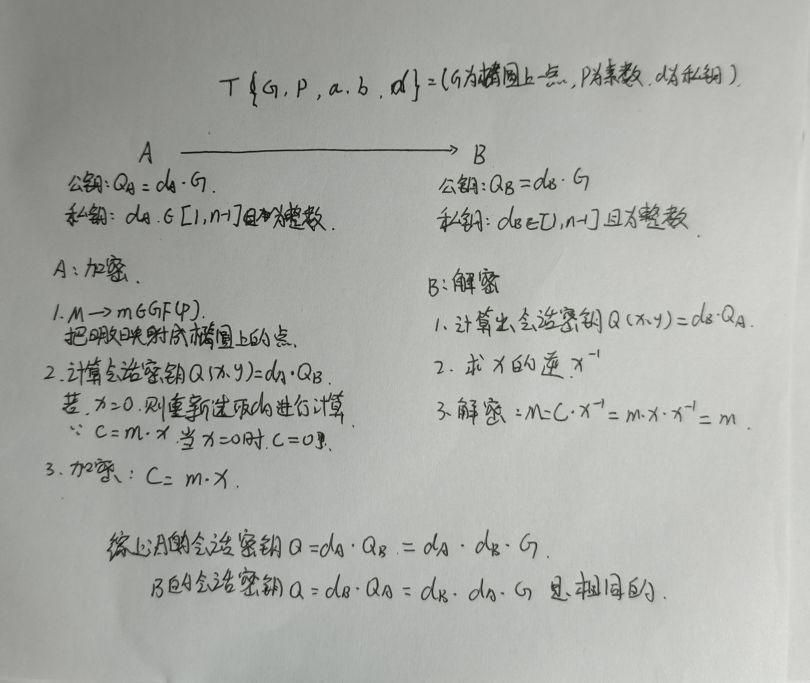 T{G, P, a, b, d} = (G为椭圆上一点, P为素数, d为私钥)
A → B
公钥: Q_A = d_A · G.
私钥: d_A ∈ [1, n-1] 且为整数.
公钥: Q_B = d_B · G
私钥: d_B ∈ [1, n-1] 且为整数.
A: 加密.
1. M → m ∈ GF(P).
把明文映射成椭圆上的点.
2. 计算会话密钥 Q(x, y) = d_A · Q_B.
若 x=0. 则重新选取d_A进行计算
∵ C = m · x 当 x=0时. C=0
3. 加密: C = m · x.
B: 解密
1. 计算出会话密钥 Q(x, y) = d_B · Q_A.
2. 求 x 的逆 x⁻¹
3. 解密: M = C · x⁻¹ = m · x · x⁻¹ = m.
综上A的会话密钥 Q = d_A · Q_B = d_A · d_B · G.
B的会话密钥 Q = d_B · Q_A = d_B · d_A · G 是相同的.